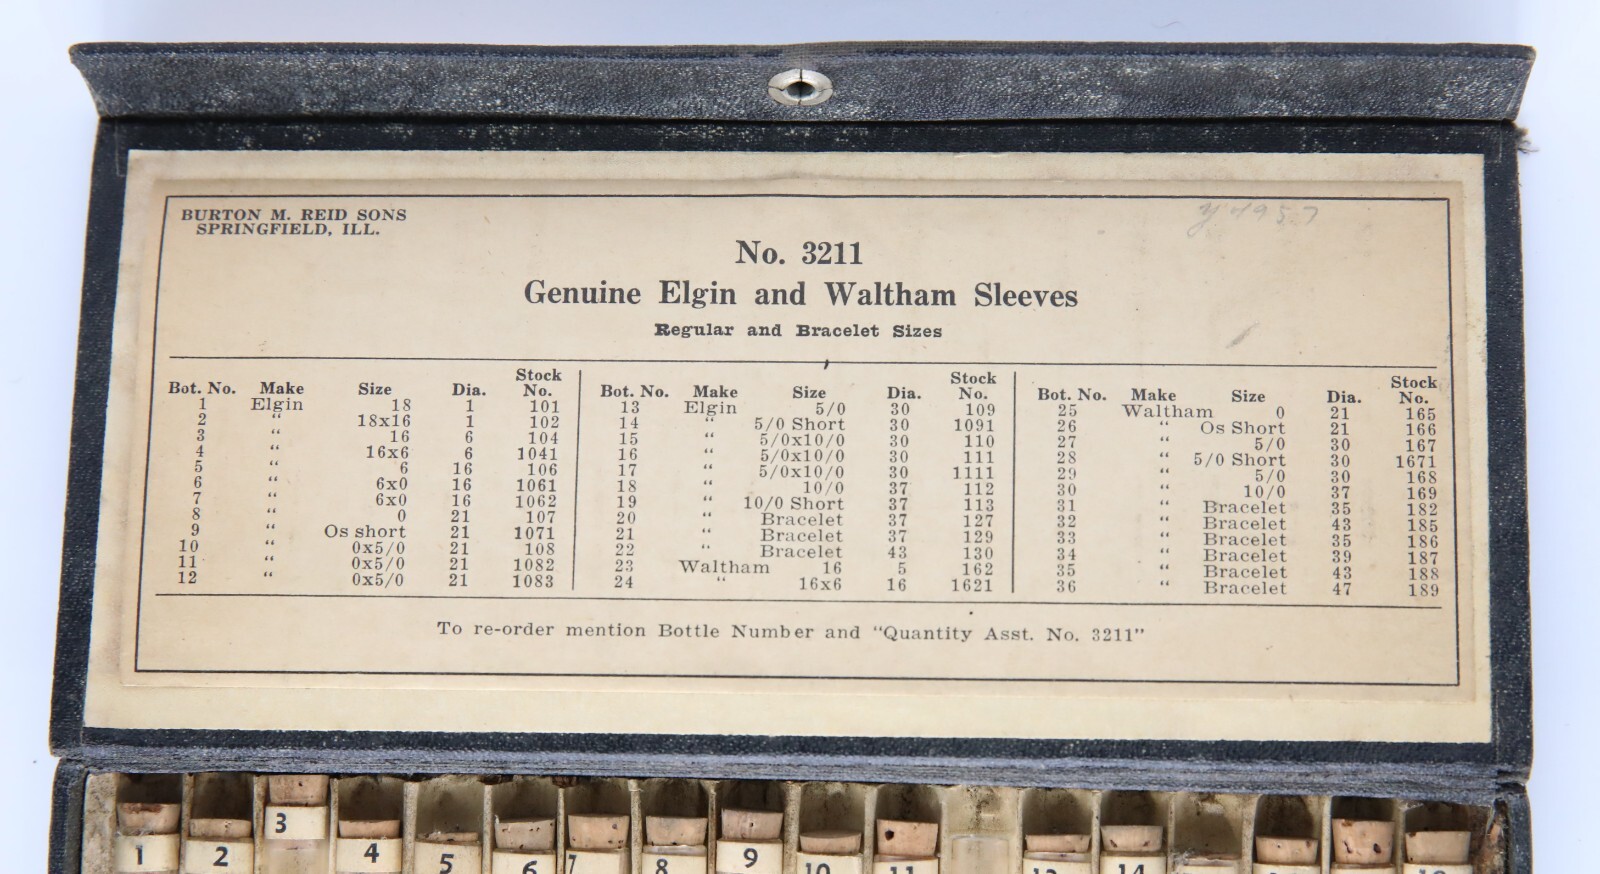 BURTON M. REID SONS
SPRINGFIELD, ILL.
No. 3211
Genuine Elgin and Waltham Sleeves
Regular and Bracelet Sizes
Bot. No. Make Size Dia. Stock No.
1 Elgin 18 1 101
2 “ 18x16 1 102
3 “ 16 6 104
4 “ 16x6 6 1041
5 “ 6 16 106
6 “ 6x0 16 1061
7 “ 6x0 16 1062
8 “ 0 21 107
9 “ Os short 21 1071
10 “ 0x5/0 21 108
11 “ 0x5/0 21 1082
12 “ 0x5/0 21 1083
Bot. No. Make Size Dia. Stock No.
13 Elgin 5/0 30 109
14 “ 5/0 Short 30 1091
15 “ 5/0x10/0 30 110
16 “ 5/0x10/0 30 111
17 “ 5/0x10/0 30 1111
18 “ 10/0 37 112
19 “ 10/0 Short 37 113
20 “ Bracelet 37 127
21 “ Bracelet 37 129
22 “ Bracelet 43 130
23 Waltham 16 5 162
24 “ 16x6 16 1621
Bot. No. Make Size Dia. Stock No.
25 Waltham 0 21 165
26 “ Os Short 21 166
27 “ 5/0 30 167
28 “ 5/0 Short 30 1671
29 “ 5/0 30 168
30 “ 10/0 37 169
31 “ Bracelet 35 182
32 “ Bracelet 43 185
33 “ Bracelet 35 186
34 “ Bracelet 39 187
35 “ Bracelet 43 188
36 “ Bracelet 47 189
To re-order mention Bottle Number and “Quantity Asst. No. 3211”
1 2 3 4 5 6 7 8 9 10 11 13 14